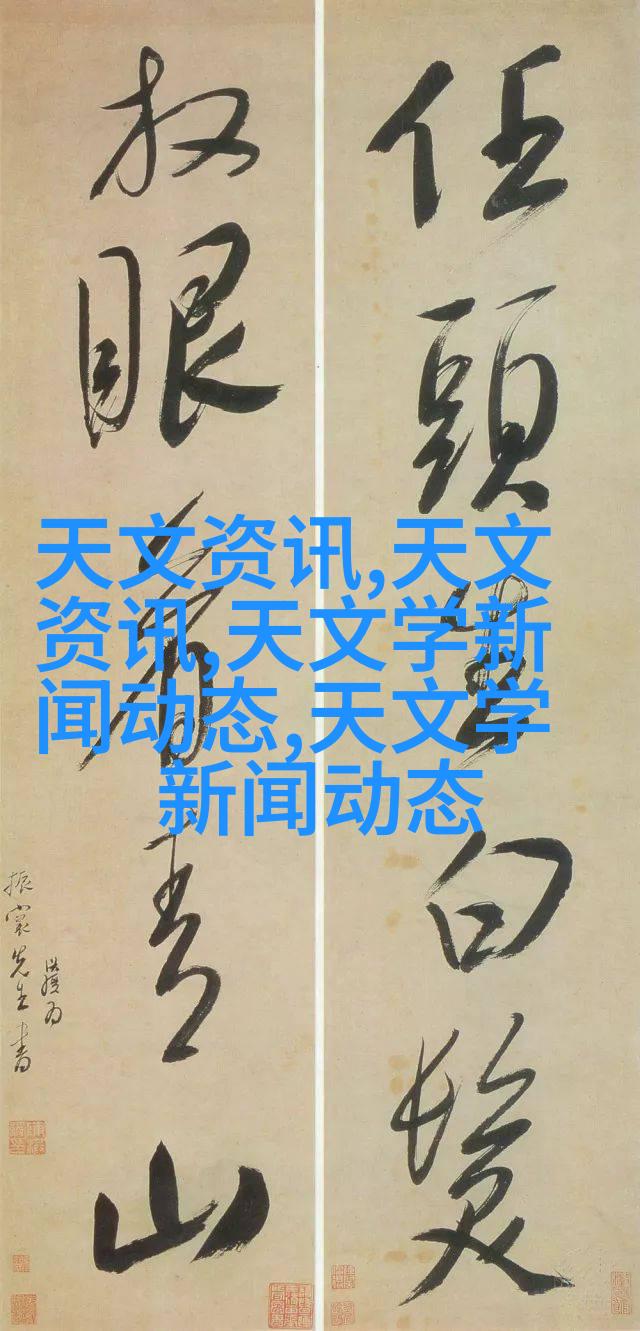 任頭生白髮
放眼看青山
天文资讯,天文
资讯,天文学新
闻动态,天文学
新闻动态
先生書